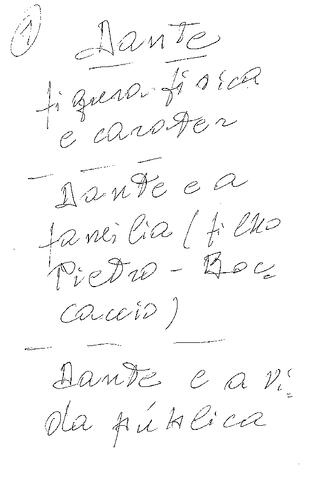 1
Dante
figura física
e caráter
Dante e a
família (filho
Pietro - Boc=
caccio)
Dante e a vi=
da pública